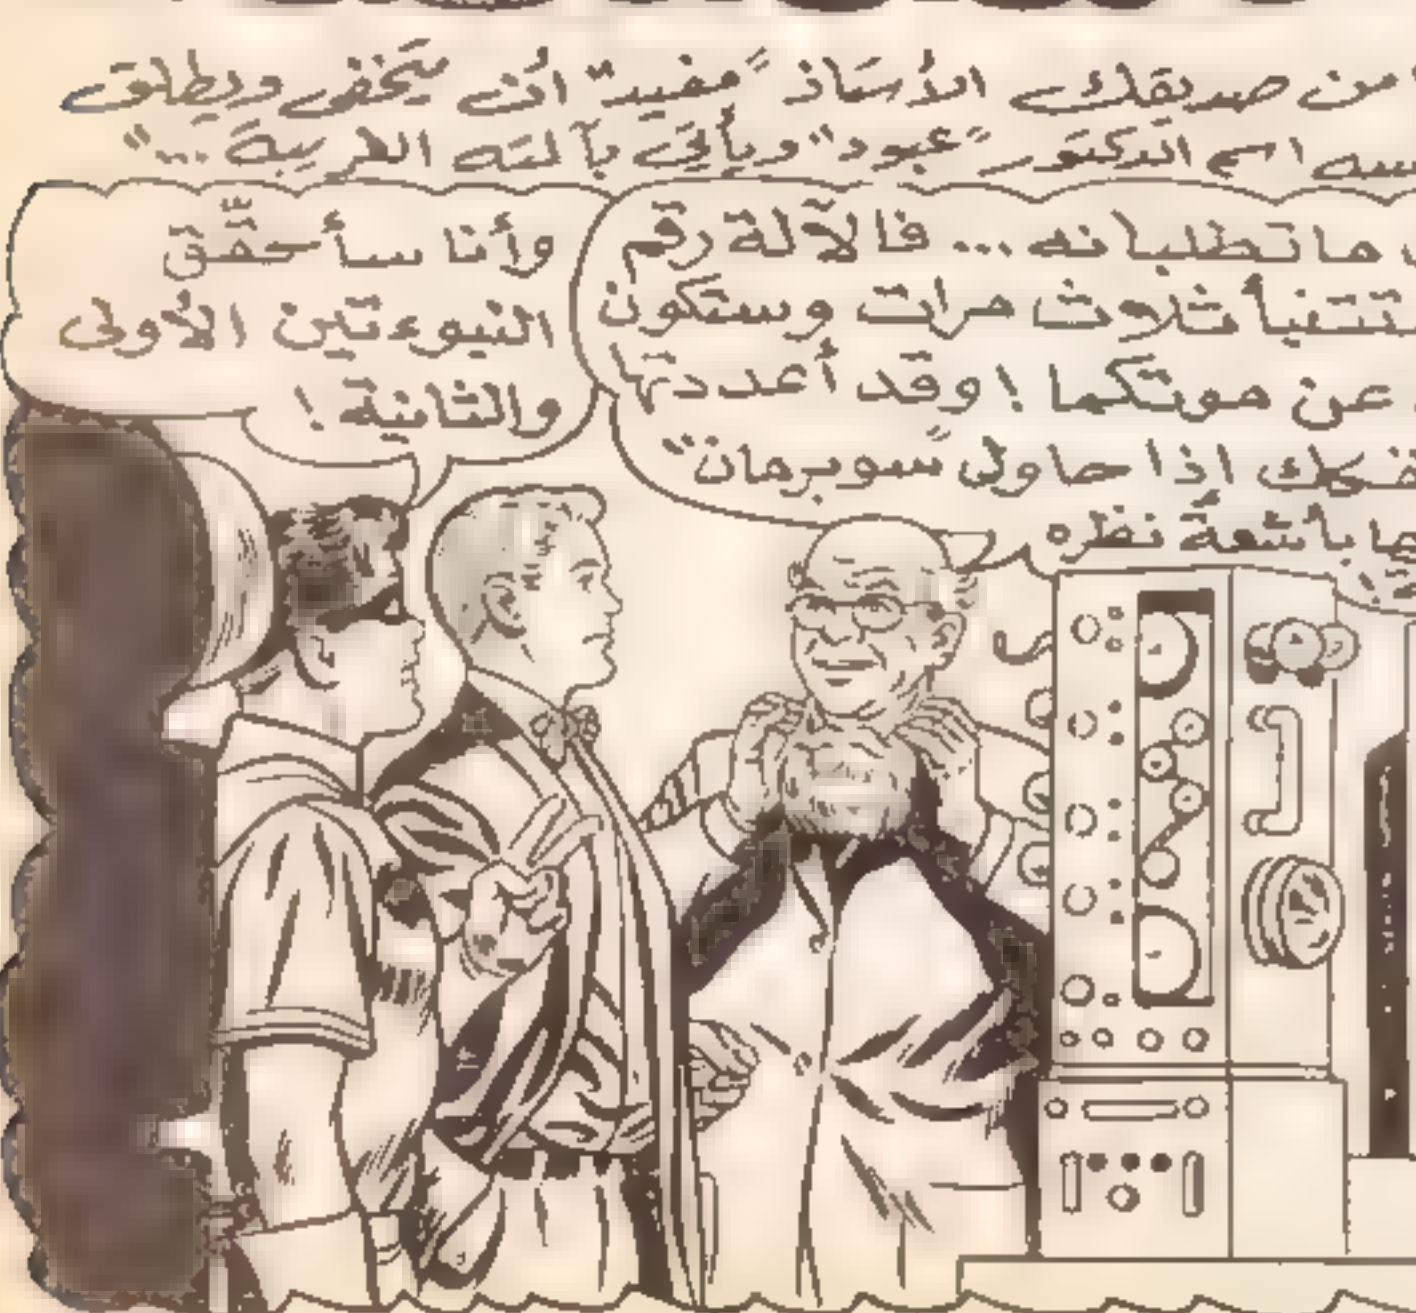 من صديقك الأستاذ "مفيد" أن يتخفى ويطلق
اسم الدكتور "عبود" ويأتي بآلته الغريبة..."
ما تطلبانه... فالآلة رقم
ستتنبأ ثلاث مرات وستكون
عن موتكما! وقد أعددتها
إذا حاول "سوبرمان"
بأشعة نظره
وأنا سأحقّق
النبوءتين الأولى
والثانية!